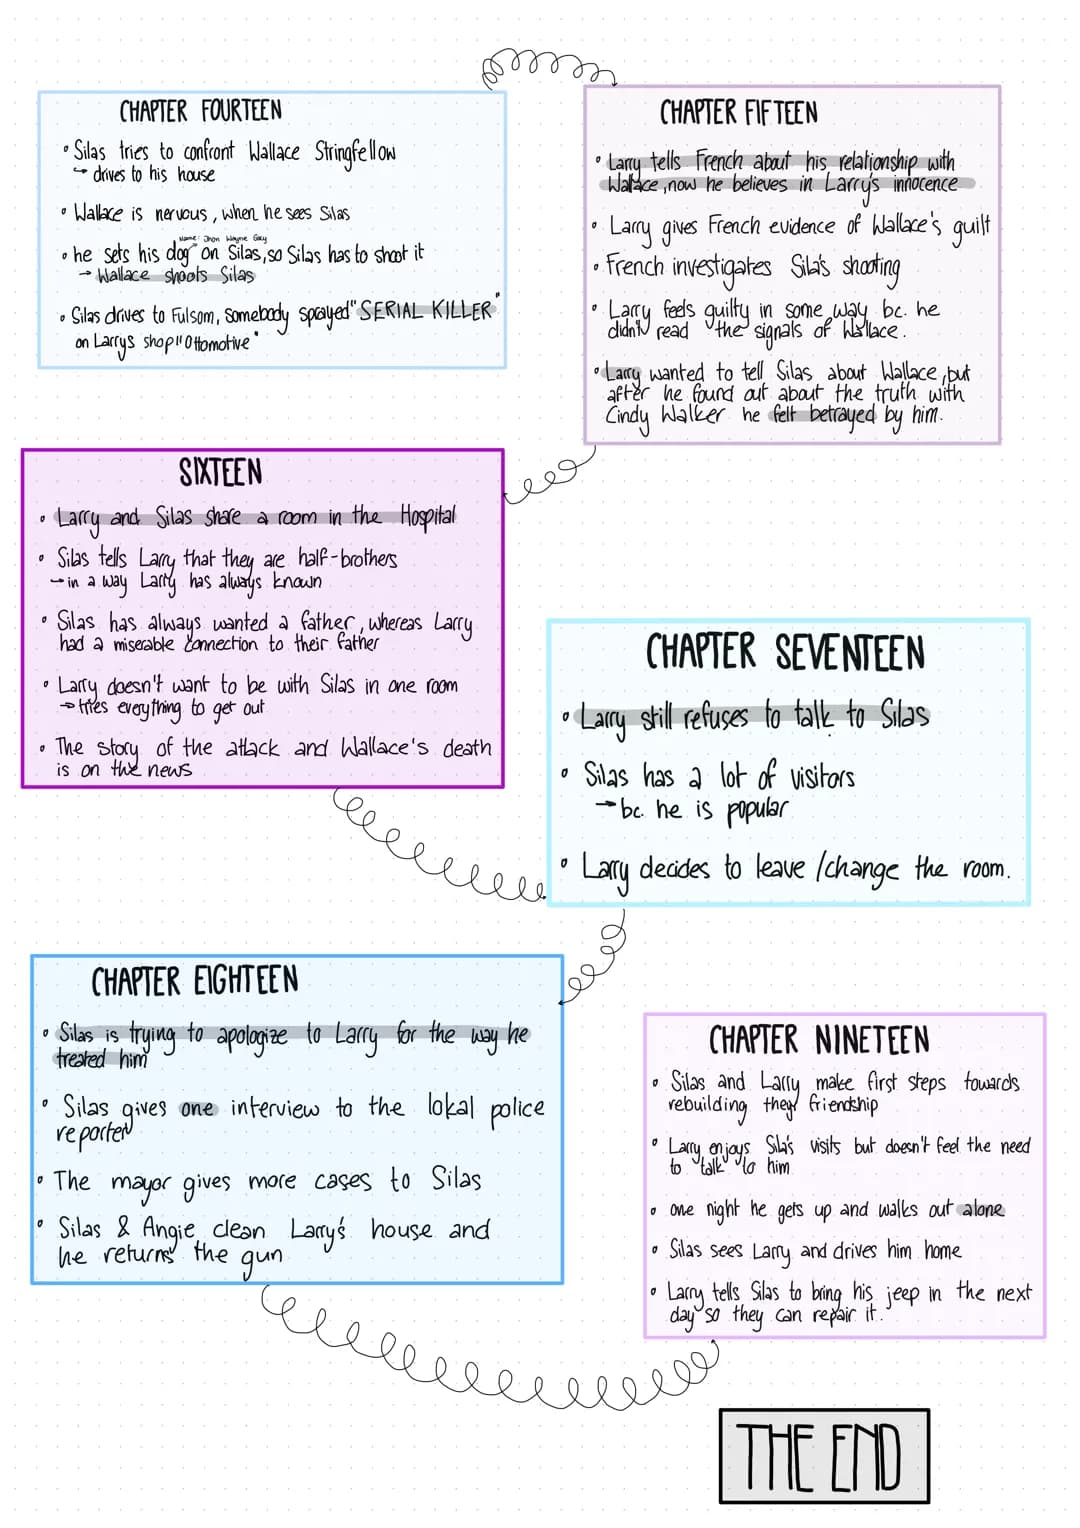 CHAPTER FOURTEEN
• Silas tries to confront Wallace Stringfellow
→ drives to his house
• Wallace is nervous, when he sees Silas
Name: Jhon Wayne Gacy
• he sets his dog on Silas, so Silas has to shoot it
→ Wallace shoots Silas
• Silas drives to Fulsom, somebody sprayed "SERIAL KILLER"
on Larrys shop "Ottomotive"
CHAPTER FIFTEEN
• Larry tells French about his relationship with
Wallace, now he believes in Larry's innocence
• Larry gives French evidence of Wallace's guilt
• French investigates Silas's shooting
• Larry feels guilty in some way bc. he
didn't read the signals of Wallace.
• Larry wanted to tell Silas about Wallace, but
after he found out about the truth with
Cindy Walker he felt betrayed by him.
SIXTEEN
• Larry and Silas share a room in the Hospital
• Silas tells Larry that they are half-brothers
→ in a way Larry has always known
• Silas has always wanted a father, whereas Larry
had a miserable connection to their father
• Larry doesn't want to be with Silas in one room
→ tries everything to get out
• The story of the attack and Wallace's death
is on the news
CHAPTER SEVENTEEN
• Larry still refuses to talk to Silas
• Silas has a lot of visitors
→ bc. he is popular
• Larry decides to leave /change the room.
CHAPTER EIGHTEEN
• Silas is trying to apologize to Larry for the way he
treated him
• Silas gives one interview to the lokal police
reporter
• The mayor gives more cases to Silas
• Silas & Angie clean Larry's house and
he returns the gun
CHAPTER NINETEEN
• Silas and Larry make first steps towards
rebuilding they friendship
• Larry enjoys Silas's visits but doesn't feel the need
to talk to him
• one night he gets up and walks out alone
• Silas sees Larry and drives him home
• Larry tells Silas to bring his jeep in the next
day so they can repair it.
THE END